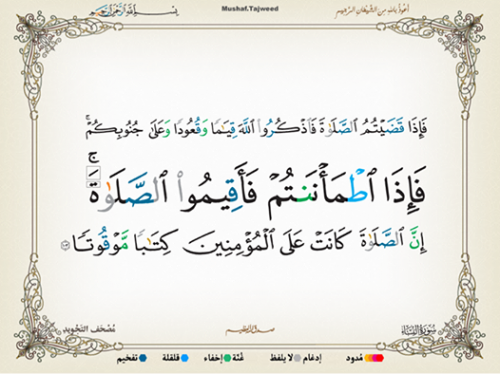 أعوذ بالله من الشيطان الرجيم
Mushaf.Tajweed
بسم الله الرحمن الرحيم
فَإِذَا قَضَيْتُمُ ٱلصَّلَوٰةَ فَٱذْكُرُوا۟ ٱللَّهَ قِيَـٰمًا وَقُعُودًا وَعَلَىٰ جُنُوبِكُمْ ۚ
فَإِذَا ٱطْمَأْنَنتُمْ فَأَقِيمُوا۟ ٱلصَّلَوٰةَ ۚ
إِنَّ ٱلصَّلَوٰةَ كَانَتْ عَلَى ٱلْمُؤْمِنِينَ كِتَـٰبًا مَّوْقُوتًا
سورة النساء
صدق الله العظيم
مصحف التجويد
مدود إدغام لا يلفظ غنّة إخفاء قلقلة تفخيم